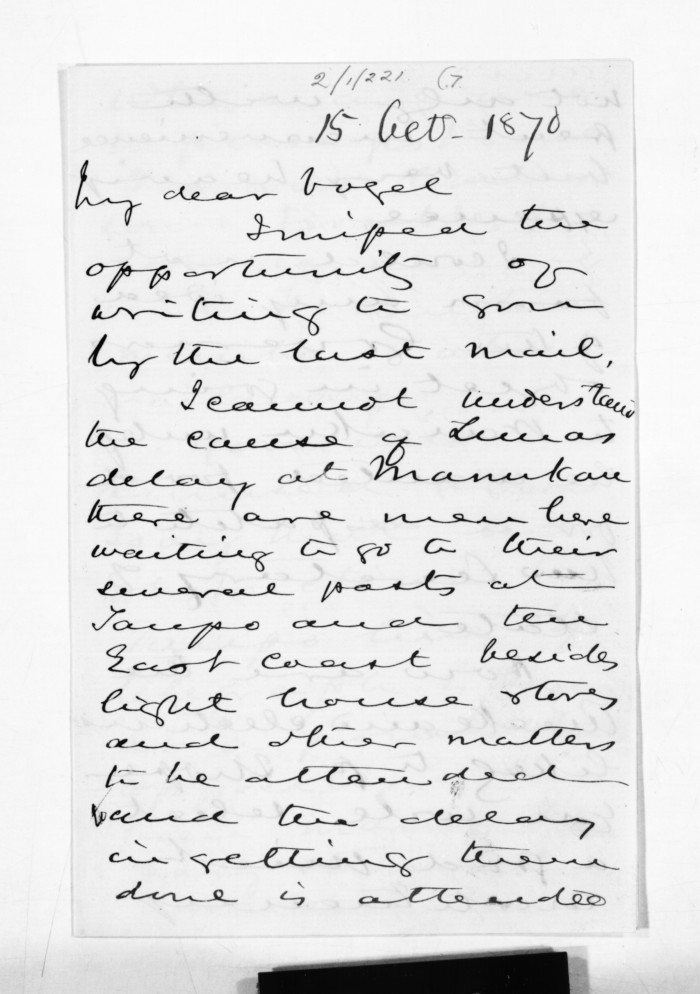 2/1/221 G7
15 Octr 1870
My dear Vogel
I missed the
opportunity of
writing to you
by the last mail.
I cannot understand
the cause of Lunas
delay at Manukau
there are men here
waiting to go to their
several posts at
Taupo and the
East coast besides
light house stores
and other matters
to be attended
and the delay
in getting them
done is attended